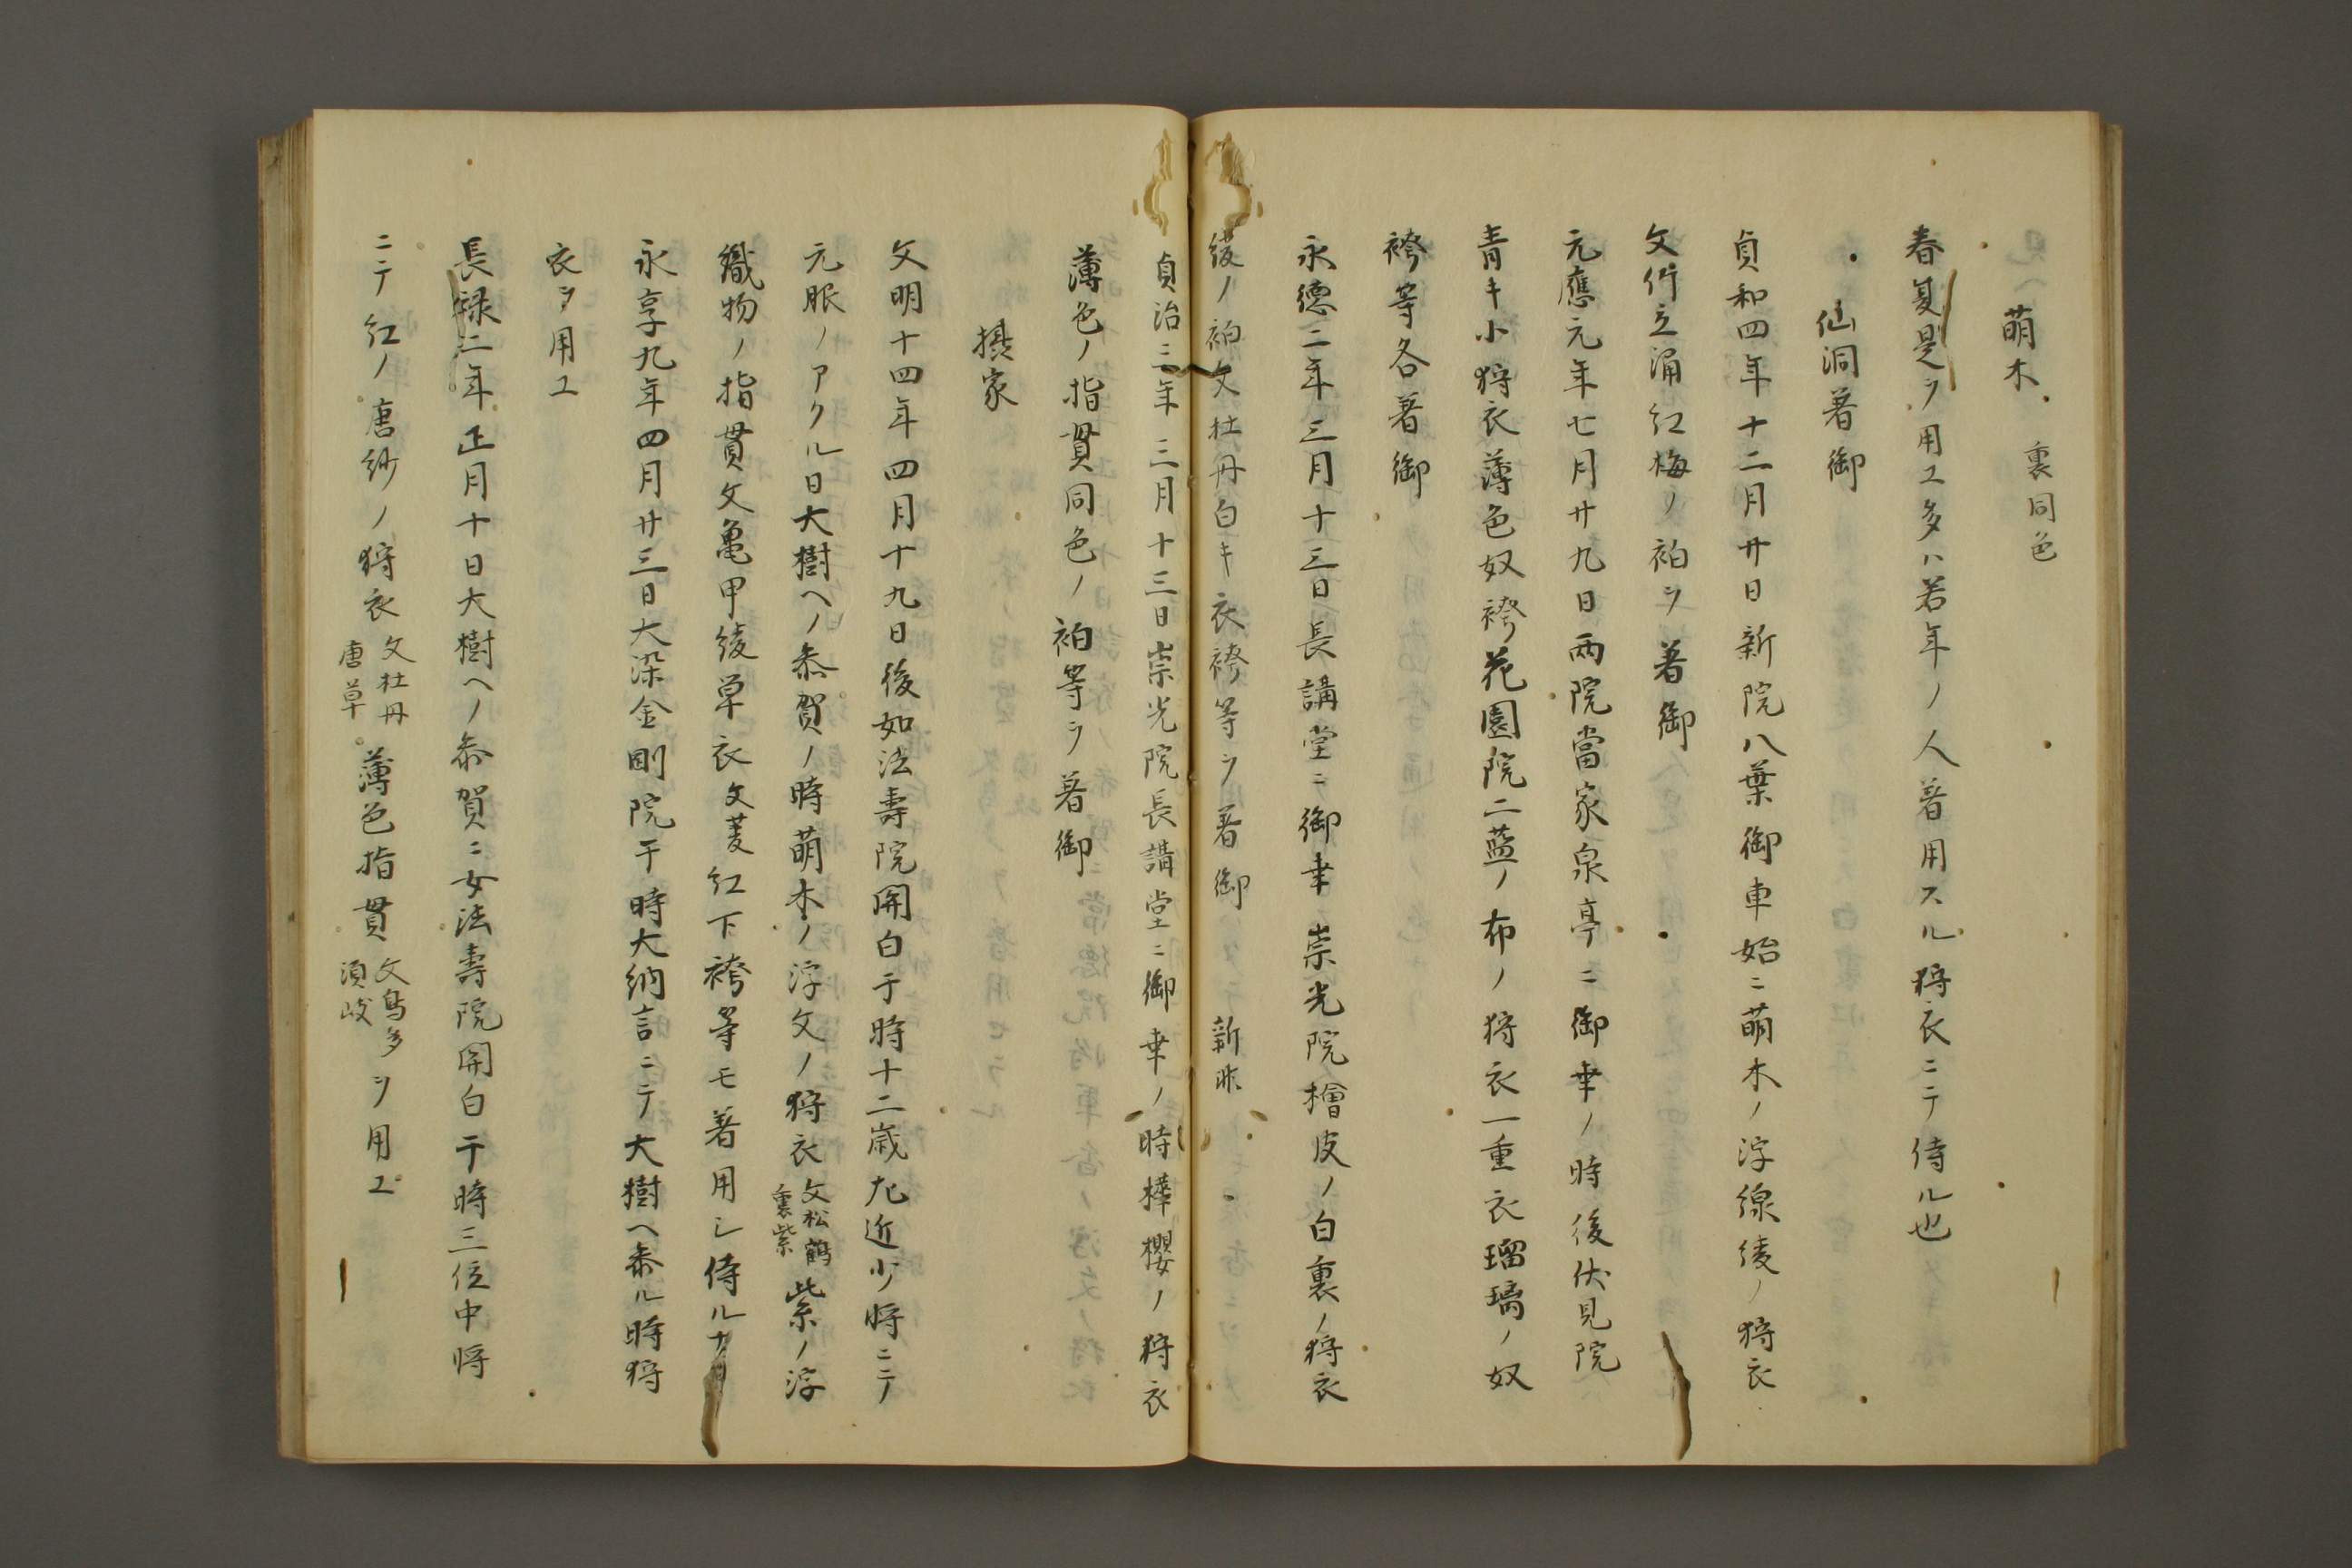 萌木 裏同色
春夏是ヲ用エ多ハ若年ノ人着用スル狩衣ニテ侍ル也
仙洞著御
貞和四年十二月廿日新院八葉御車始ニ萌木ノ浮線綾ノ狩衣
文竹立涌紅梅ノ衵ヲ著御
元應元年七月廿九日両院當家泉亭ニ御幸ノ時後伏見院
青キ小狩衣薄色奴袴花園院二藍ノ布ノ狩衣一重衣瑠璃ノ奴
袴等各著御
永徳二年三月十三日長講堂ニ御幸崇光院檜皮ノ白裏ノ狩衣
綾ノ衵文杜丹白キ衣袴等ヲ著御 新
貞治三年三月十三日崇光院長講堂ニ御幸ノ時樺櫻ノ狩衣
薄色ノ指貫同色ノ衵等ヲ著御
摂家
文明十四年四月十九日後如法壽院関白于時十二歳左近少将ニテ
元服ノアクル日大樹ヘノ叅賀ノ時萌木ノ浮文ノ狩衣文松鶴裏紫紫ノ浮
織物ノ指貫文亀甲綾単衣文菱紅下袴等モ著用シ侍ルナリ
永享九年四月廿三日大染金剛院于時大納言ニテ大樹ヘ叅ル時狩
衣ヲ用エ
長禄二年正月十日大樹ヘノ叅賀ニ女法壽院関白于時三位中将
ニテ紅ノ唐紗ノ狩衣文杜丹唐草薄色指貫文鳥多須岐ヲ用エ